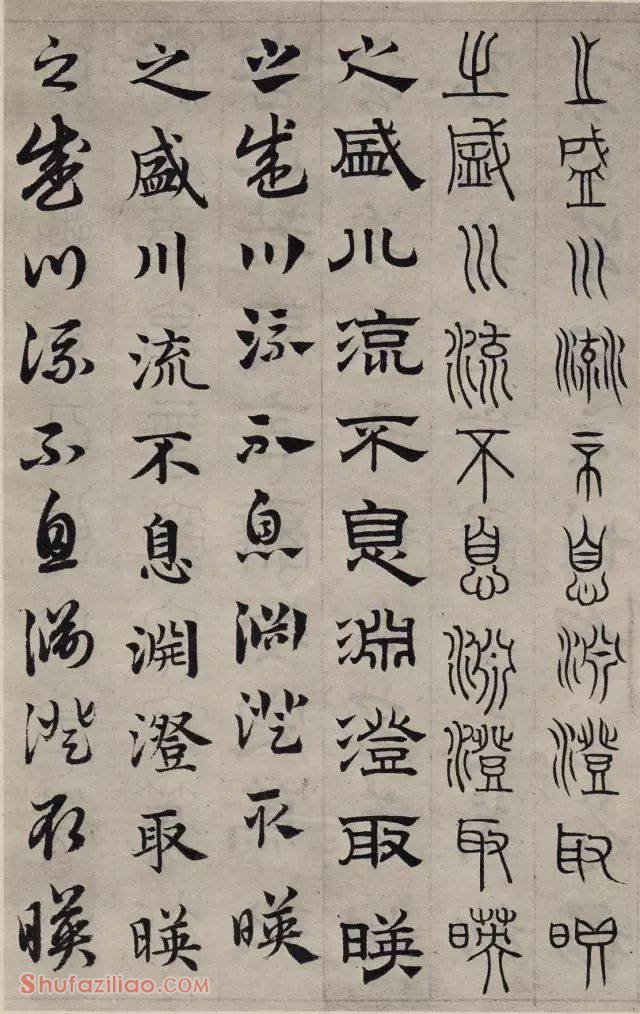 之盛川流不息淵澄取暎
之盛川流不息淵澄取暎
之盛川流不息淵澄取暎
之盛川流不息淵澄取暎
之盛川流不息渊澄取暎
之盛川流不息淵澄取暎
Shufaziliao.com